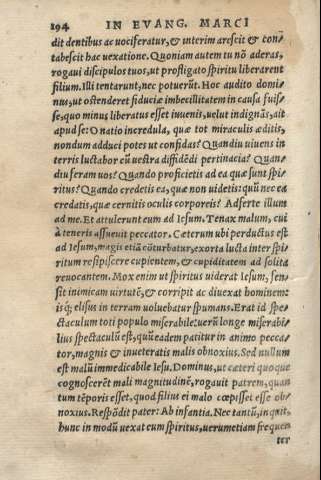 194 IN EVANG. MARCI
dit dentibus ac vociferatur, & interim arescit & con⸗
tabescit hac vexatione. Quoniam autem tu nō aderas,
rogaui discipulos tuos, ut profligato spiritu liberarent
filium. Illi tentarunt, nec potuerūt. Hoc audito domi⸗
nus, ut ostenderet fiduciæ imbecillitatem in causa fuis⸗
se, quo minus liberatus esset iuuenis, uelut indignās, ait
apud se: O natio incredula, quæ tot miraculis æditis,
nondum adduci potes ut confidas? Quandiu uiuens in
terris luctabor cū uestra diffidēdi pertinacia? Quan⸗
diu feram uos? Quando proficietis ad ea quæ sunt spi⸗
ritus? Quando credetis ea, quæ non uidetis: quū nec ea
credatis, quæ cernitis oculis corporeis? Adferte illum
ad me. Et attulerunt eum ad Iesum. Tenax malum, cui
à teneris assueuit peccator. Cæterum ubi perductus est
ad Iesum, magis etiā cōturbatur, exorta lucta inter spi⸗
ritum resipiscere cupientem, & cupiditatem ad solita
reuocantem. Mox enim ut spiritus uiderat Iesum, sen⸗
sit inimicam uirtutē, & corripit ac diuexat hominem:
isq; elisus in terram uoluebatur spumans. Erat id spe⸗
ctaculum toti populo miserabile: uerū longe miserabi⸗
lius spectaculū est, quū eadem patitur in animo pecca⸗
tor, magnis & inueteratis malis obnoxius. Sed nullum
est malū immedicabile Iesu. Dominus, ut cæteri quoque
cognoscerēt mali magnitudinē, rogauit patrem, quan
tum tēporis esset, quod filius ei malo cœpisset esse ob⸗
noxius. Respōdit pater: Ab infantia. Nec tantū, inquit,
hunc in modū uexat eum spiritus, uerumetiam frequen
ter